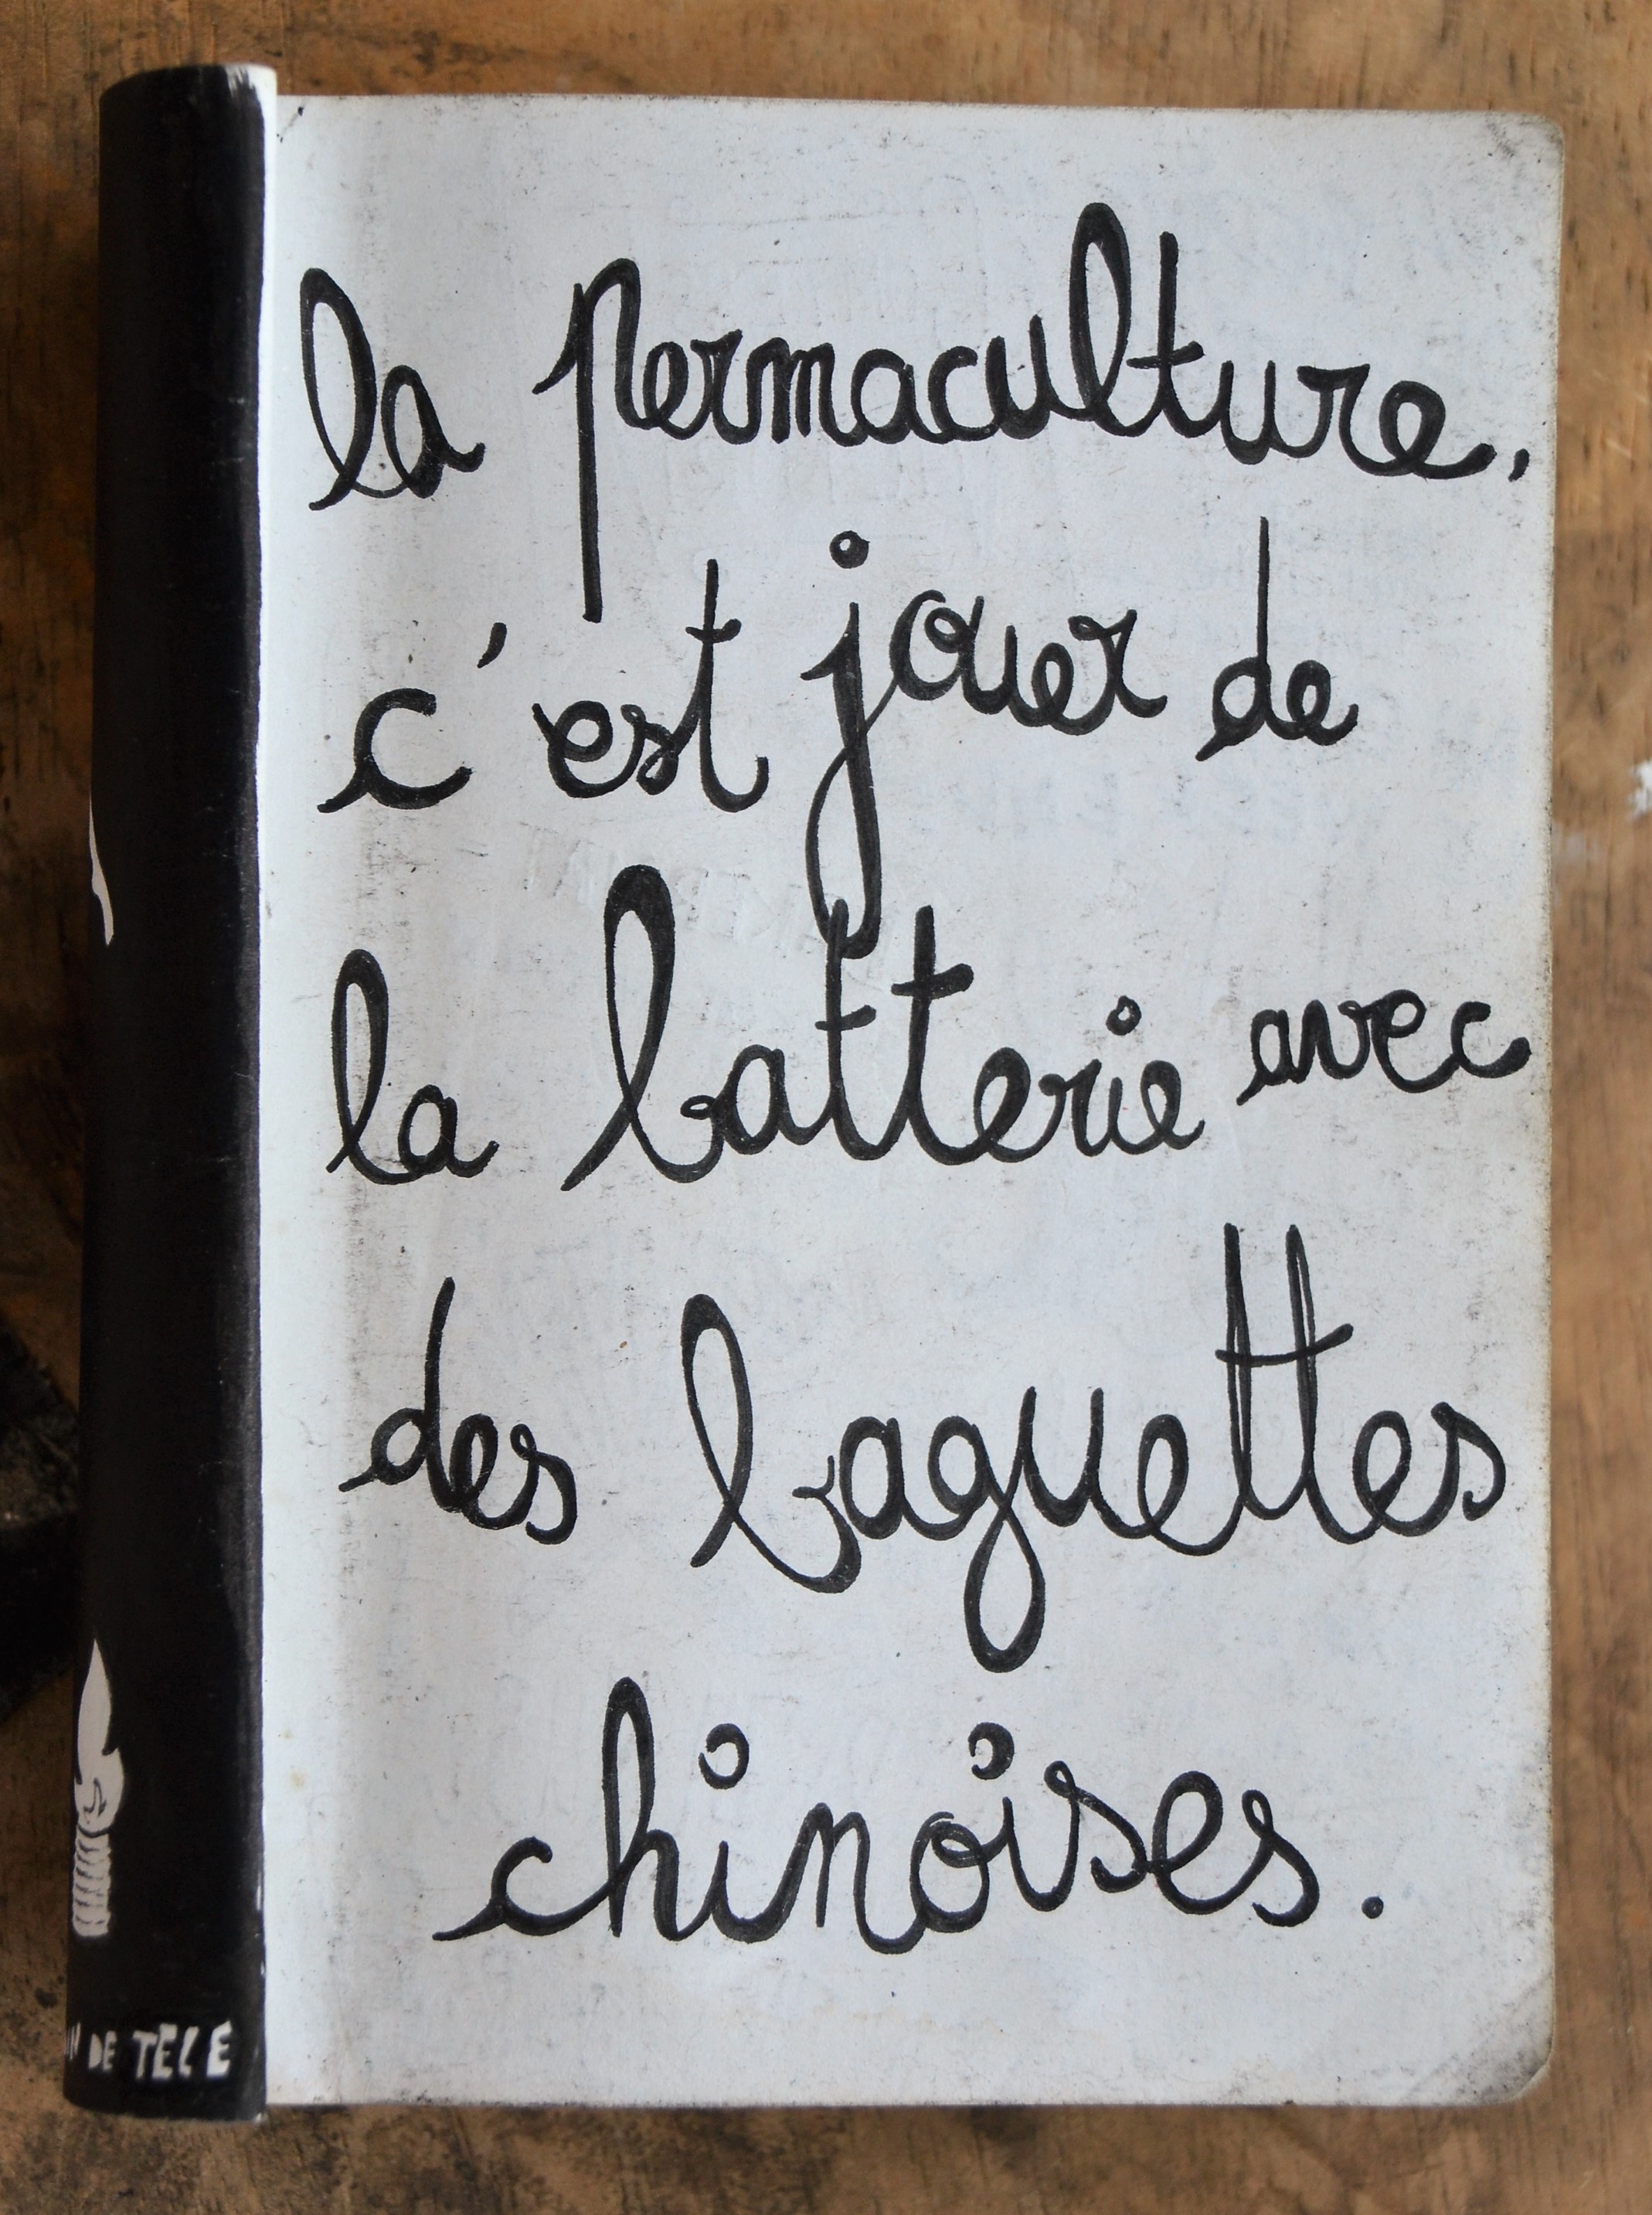 la permaculture,
c'est jouer de
la batterie avec
des baguettes
chinoises.
DE TELE